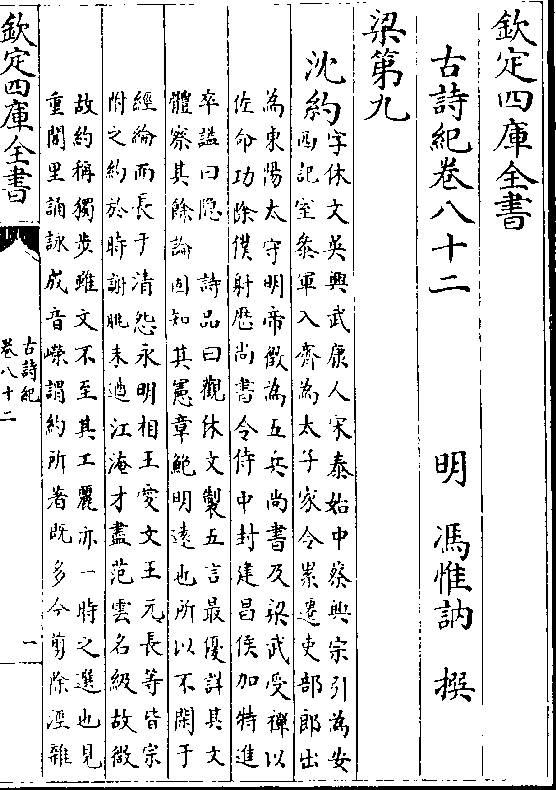 欽定四庫全書
古詩紀卷八十二
明 馮惟訥 撰
梁第九
沈約
字休文吳興武康人宋泰始中蔡興宗引為安
西記室叅軍入齊為太子家令累遷吏部郎出
為東陽太守明帝徵為五兵尚書及梁武受禪以
佐命功除僕射歴尚書令侍中封建昌侯加特進
卒諡曰隐 詩品曰觀休文製五言最優詳其文
體察其餘論固知其憲章鮑明逺也所以不閑于
經綸而長于清怨永明相王愛文王元長等皆宗
附之約於時謝朓未遒江淹才盡范雲名級故微
故約稱獨步雖文不至其工麗亦一時之選也見
重閭里誦詠成音嶸謂約所著既多今剪除淫雜
欽定四庫全書
古詩紀
卷八十二
一